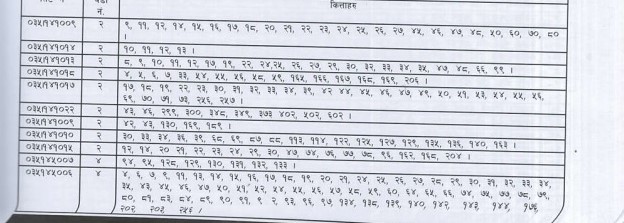 नं. कित्ताहरु
०३५१४१००९ २ ९, ११, १२, १४, १५, १६, १७, १८, २०, २१, २२, २३, २४, २५, २६, २७, ४५, ४६, ४७, ४८, ५०, ६०, ७०, ८०
।
०३५१४१०१४ २ १०, ११, १२, १३ ।
०३५१४१०१३ २ ८, ९, १०, ११, १२, १७, १९, २२, २४,२५, २६, २७, २९, ३०, ३२, ३३, ३४, ३५, ४७, ४८, ६६, ९९ ।
०३५१४१०१८ २ ४, ५, ६, ७, ३३, ५४, ५५, ५६, ५८, ५९, १६५, १६६, १६७, १६८, १६९, २०६ ।
०३५१४१०१७ २ १७, १८, १९, २२, २३, ३०, ३१, ३२, ३३, ३४, ३९, ४२ ४४, ४५, ४६, ४७, ४९, ५०, ५१, ५३, ५४, ५५, ५६,
६९, ७०, ७१, ७३, २५६, २५७ ।
०३५१४१०२२ २ ४३, ४६, २९९, ३००, ३४८, ३४९, ३७३ ४०२, ५०२, ६०२ ।
०३५१४१००९ २ ४२, ४३, १३०, १६९, १८९ ।
०३५१४१०१० २ ३०, ३३, ३४, ३६, ३९, ६८, ६९, ८७, ८८, ११३, ११४, १२२, १२५, १२७, १२९, १३५, १३६, १४०, १६३ ।
०३५१४१०१५ २ १२, १४, २०, २१, २२, २३, २४, २९, ३०, ४७, ७४, ७६, ७७, ७८, ९६, १६२, १६८, २०४ ।
०३५१४५००७ ४ ९४, ९५, १२८, १२९, १३०, १३१, १३२, १३३ ।
०३५१४५००६ ४ ४, ६, ७, ९, ११, १३, १४, १५, १६, १७, १८, १९, २०, २१, २४, २५, २६, २७, २८, २९, ३०, ३१, ३२, ३३, ३४,
३५, ४३, ४५, ४६, ४७, ५०, ५१, ५२, ५४, ५५, ५६, ५७, ५८, ५९, ६०, ६४, ६५, ६६, ७४, ७५, ७७, ७८, ७९,
८०, ८१, ८३, ८४, ८९, ९०, ९१, ९ २, ९३, ९६, ९७, १३४, १३८, १३९, १४०, १४२, १४३ १४४ १७६
२०२ २०३ २५६ ।